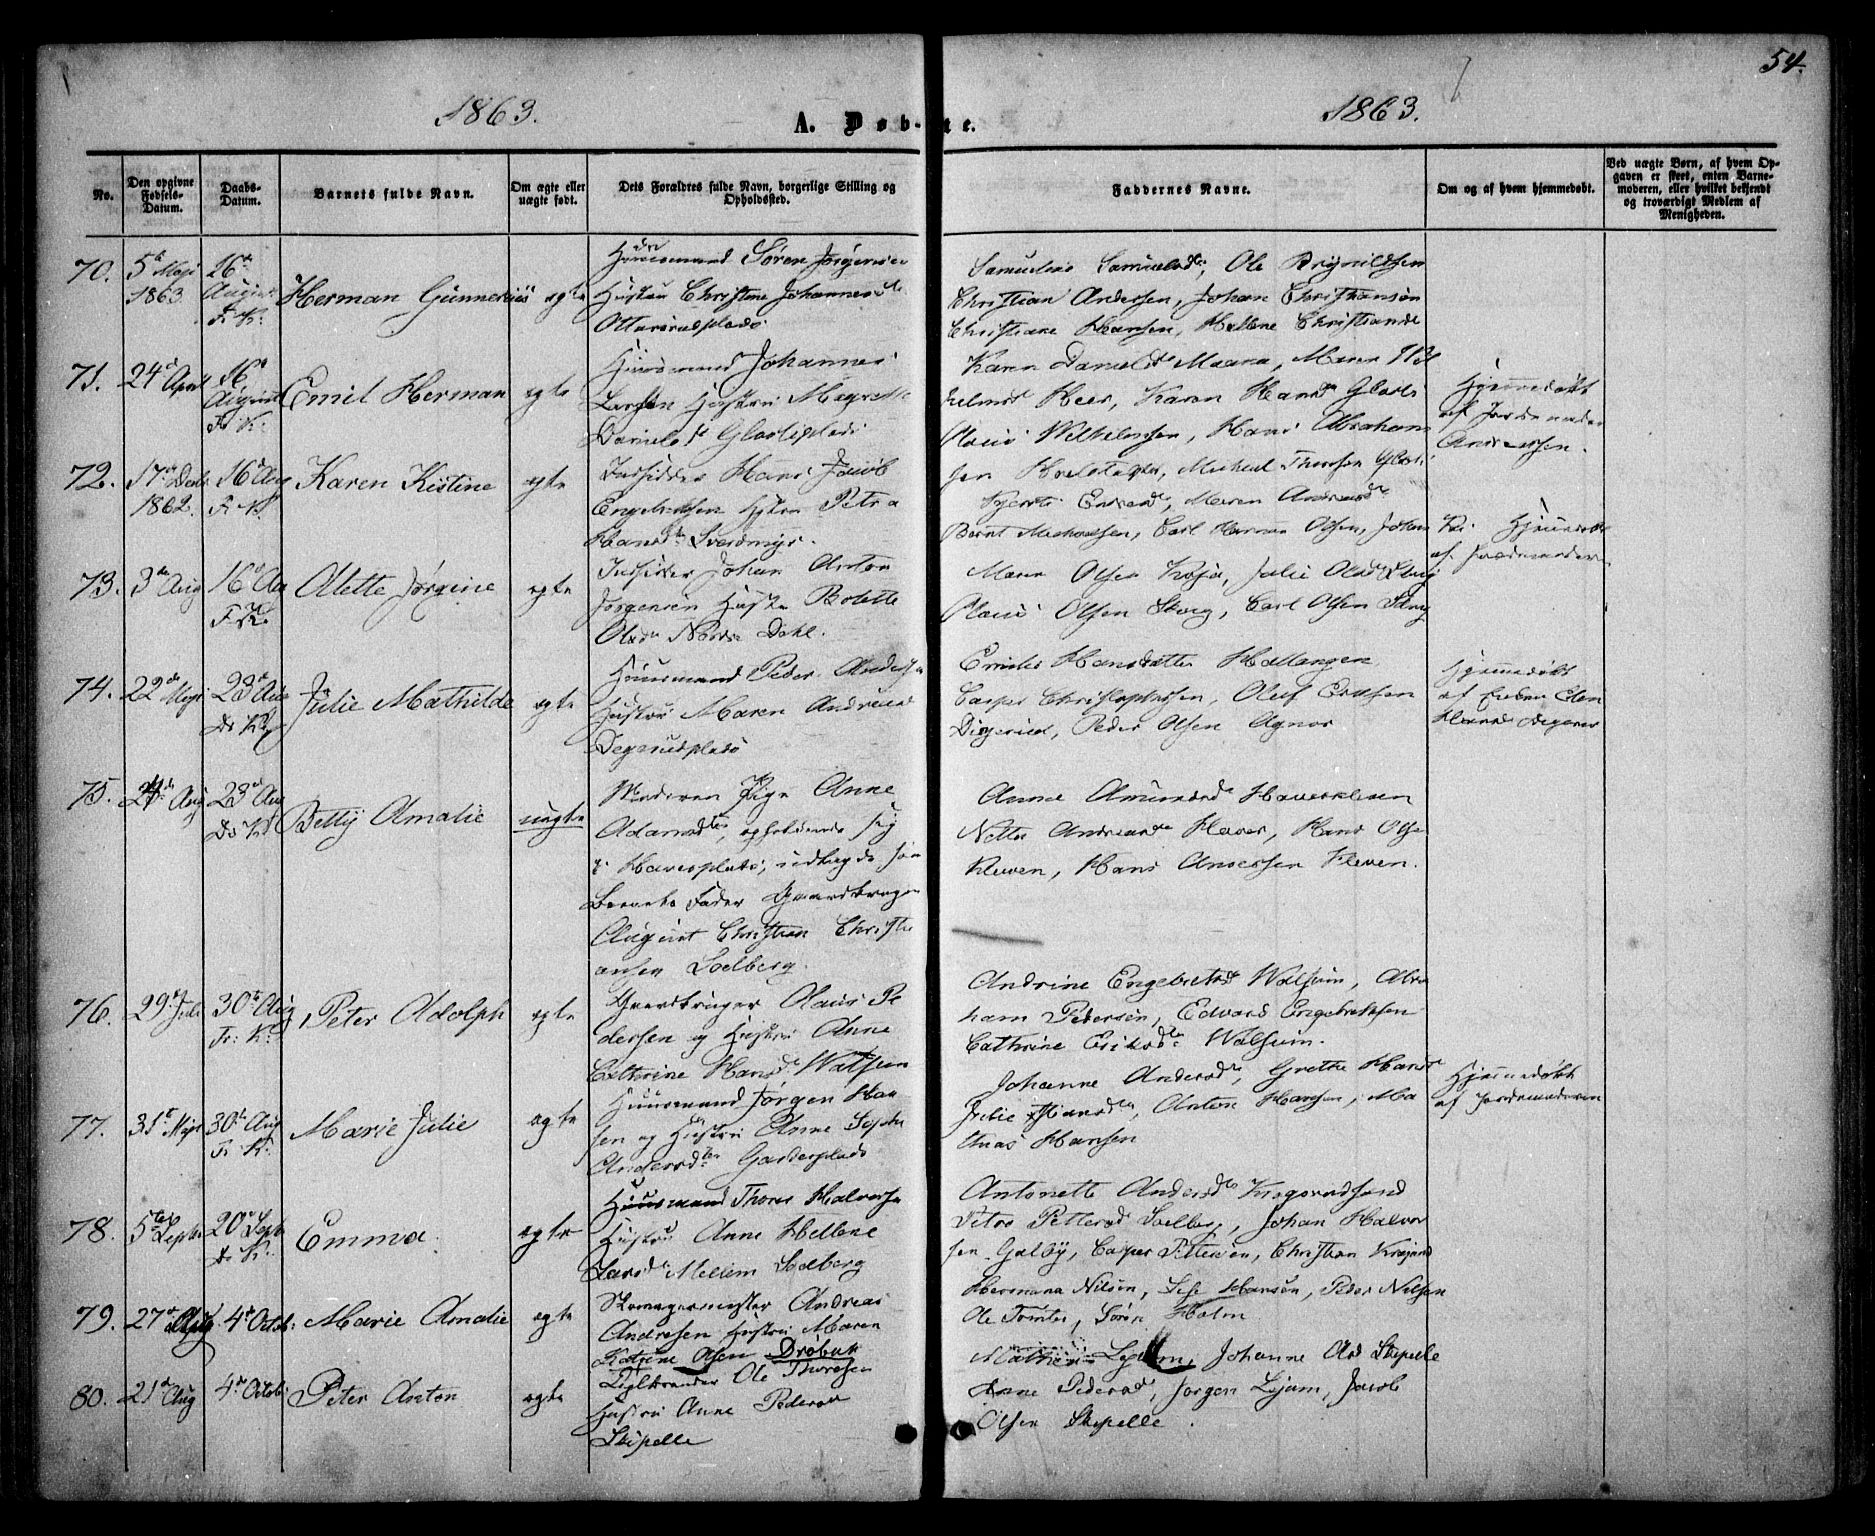 54.
1863.
A. Døb-ne.
1863.
No.
Den opgivne Fødsels-Datum.
Daabs-Datum.
Barnets fulde Navn.
Om ægte eller uægte født.
Dets Forældres fulde Navn, borgerlige Stilling og Opholdssted.
Faddernes Navne.
Om og af hvem hjemmedøbt.
Ved uægte Børn, af hvem Opgaven er skeet, enten Barnemoderen, eller hvilket bekjendt og troværdigt Medlem af Menigheden.
70.
5te Maji 1863
16de August Fr. K.
Herman Gunnerius
egte
Huusmand Søren Jørgensen
Hustru Christine Johannesdtr
Ottarsrudplads
Samueline Samuelsdtr, Ole Brynildsen
Christian Andersen, Johan Christiansen
Christiane Hansen, Hellene Christiansdtr
71.
24de April
16de August Fr. K.
Emil Herman
egte
Huusmand Johannes
Larsen Hustru Magrethe
Danielsdtr Glarliplads
Karen Danielsdtr
Heer, Karen Hansdtr
Hans Abraham
sen
Michael Thoresen
Hjemmedøbt
af Jordemoder
Andersen.
72.
17de Decbr 1862.
16de Aug F. K.
Karen Kistine
egte
Indsidder Hans Jacob
Engebretsen Hustru Petra
Hansdtr Sverdmyr.
Maren Andreasdtr
Bernt Michaelsen, Carl Herman Olsen, Johan
Hjemmedøbt
af Jordemoderen
73.
3die Aug
16de Aug F. K.
Alette Jørgine
egte
Indsidder Johan Anton
Jørgensen Hustru Bolette
Olsdtr Nordre Dahl.
Maren Olsen Kojo, Julie Olsdtr Skog
Olaus Olsen Skog, Carl Olsen Skog
74.
22de Maji
23de Aug Dr. K.
Julie Mathilde
egte
Huusmand Peder Andersen
Hustru Maren Andreasd
Degerudplads
Emilie Hansdatter Hallangen
Casper Christophersen, Oluf Olsen
Digerud, Peder Olsen Agnor
Hjemmedøbt
af Enken Ellen
75.
Aug
23de Aug Dr. K.
Betty Amalie
uegte
Moderen Pige Anne
Adamsdtr, opholdende sig
i Haverplads; udlagde som
Barnets Fader Gaardbruger
August Christian Christi
ansen Solberg.
Anne Amundsdtr Haverkleven
Nette Andreasdtr Haver, Hans Olsen
Kleven, Hans Andersen Kleven.
76.
29de Juli
30te Aug Fr: K:
Peter Adolph
egte
Gaardbruger Olaus Pe
dersen og Hustru Anne
Cathrine Hansd. Walsum
Andrine Engebretsdtr Walsum, Abra
ham Pedersen, Edvard Engebretsen
Cathrine Eriksdtr Walsum.
77.
31te Maji
30te Aug Fr. K:
Marie Julie
egte
Huusmand Jørgen Han
sen og Hustru Anne Sophie
Andersdtr Garderplads
Johanne Andersdtr, Grethe Hansd
Julie Hansdtr, Anton Hansen, Ma
thias Hansen
Hjemmedøbt
af Jordemoderen
78.
5te Septbr
20de Septb Dr. K:
Emma.
egte
Huusmand Thorer Halvorsen
Hustru Anne Hellene
Larsdtr Mellem Solberg
Antonette Andersdtr Krogsrudsand
Petra Pettersd Solberg, Johan Halvor
sen Galby, Casper Pettersen, Christian
79.
27de Aug
4de Octob:
Marie Amalie
egte
Skomagermester Andreas
Andresen Hustru Maren
Katrine Olsen Drøbak
Hermana Nilsen, Hansen, Peder Nilsen
Ole Tomter, Søren Holm
80.
21de Aug
4de Octob:
Peter Anton
egte
Teglbrænder Ole Thoresen
Hustru Anne Pedersd
Skipelle
Lejum, Johanne Olsd Skipelle
Anne Pedersd, Jørgen Lejum, Jacob
Olsen Skipelle.